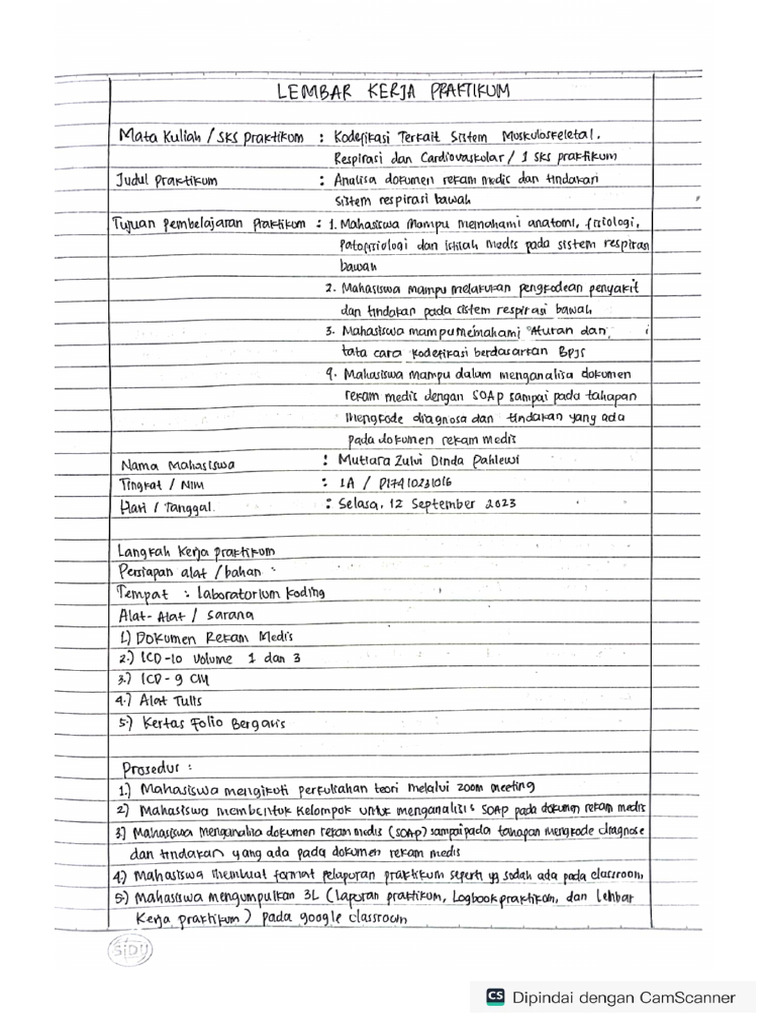 LEMBAR KERJA PRAKTIKUM
Mata Kuliah / SKS praktikum : Kodefikasi Terkait Sistem Moskuloskeletal.
Respirasi dan Cardiovaskolar / 1 SKS praktikum
Judul Praktikum : Analisa dokumen rekam medis dan tindakan
sistem respirasi bawah
Tujuan pembelajaran praktikum : 1. Mahasiswa mampu memahami anatomi, fisiologi,
patofisiologi dan istilah medis pada sistem respirasi
bawah
2. Mahasiswa mampu melakukan pengkodean penyakit
dan tindakan pada sistem respirasi bawah
3. Mahasiswa mampu memahami Aturan dan
tata cara kodefikasi berdasarkan BPJS
4. Mahasiswa mampu dalam menganalisa dokumen
rekam medis dengan SOAP sampai pada tahapan
mengkode diagnosa dan tindakan yang ada
pada dokumen rekam medis
Nama Mahasiswa : Mutiara Zulvi Dinda Pahlewi
Tingkat / NIM : 1A / P17410231016
Hari / Tanggal. : Selasa, 12 September 2023
Langkah Kerja praktikum
Persiapan alat / bahan :
Tempat : Laboratorium Koding
Alat-Alat / Sarana
1.) Dokumen Rekam Medis
2.) ICD-10 Volume 1 dan 3
3.) ICD-9 CM
4.) Alat Tulis
5.) Kertas Folio Bergaris
Prosedur :
1.) Mahasiswa mengikuti perkuliahan teori melalui zoom meeting
2) Mahasiswa membentuk kelompok untuk menganalisis SOAP pada dokumen rekam medis
3) Mahasiswa Menganalisa dokumen rekam medis (SOAP) sampai pada tahapan mengkode diagnose
dan tindakan yang ada pada dokumen rekam medis
4.) Mahasiswa membuat format pelaporan praktikum seperti yg sudah ada pada classroom
5.) Mahasiswa mengumpulkan 3L (laporan praktikum, Logbook praktikum, dan lembar
Kerja praktikum) pada google classroom
SIDU
CS Dipindai dengan CamScanner